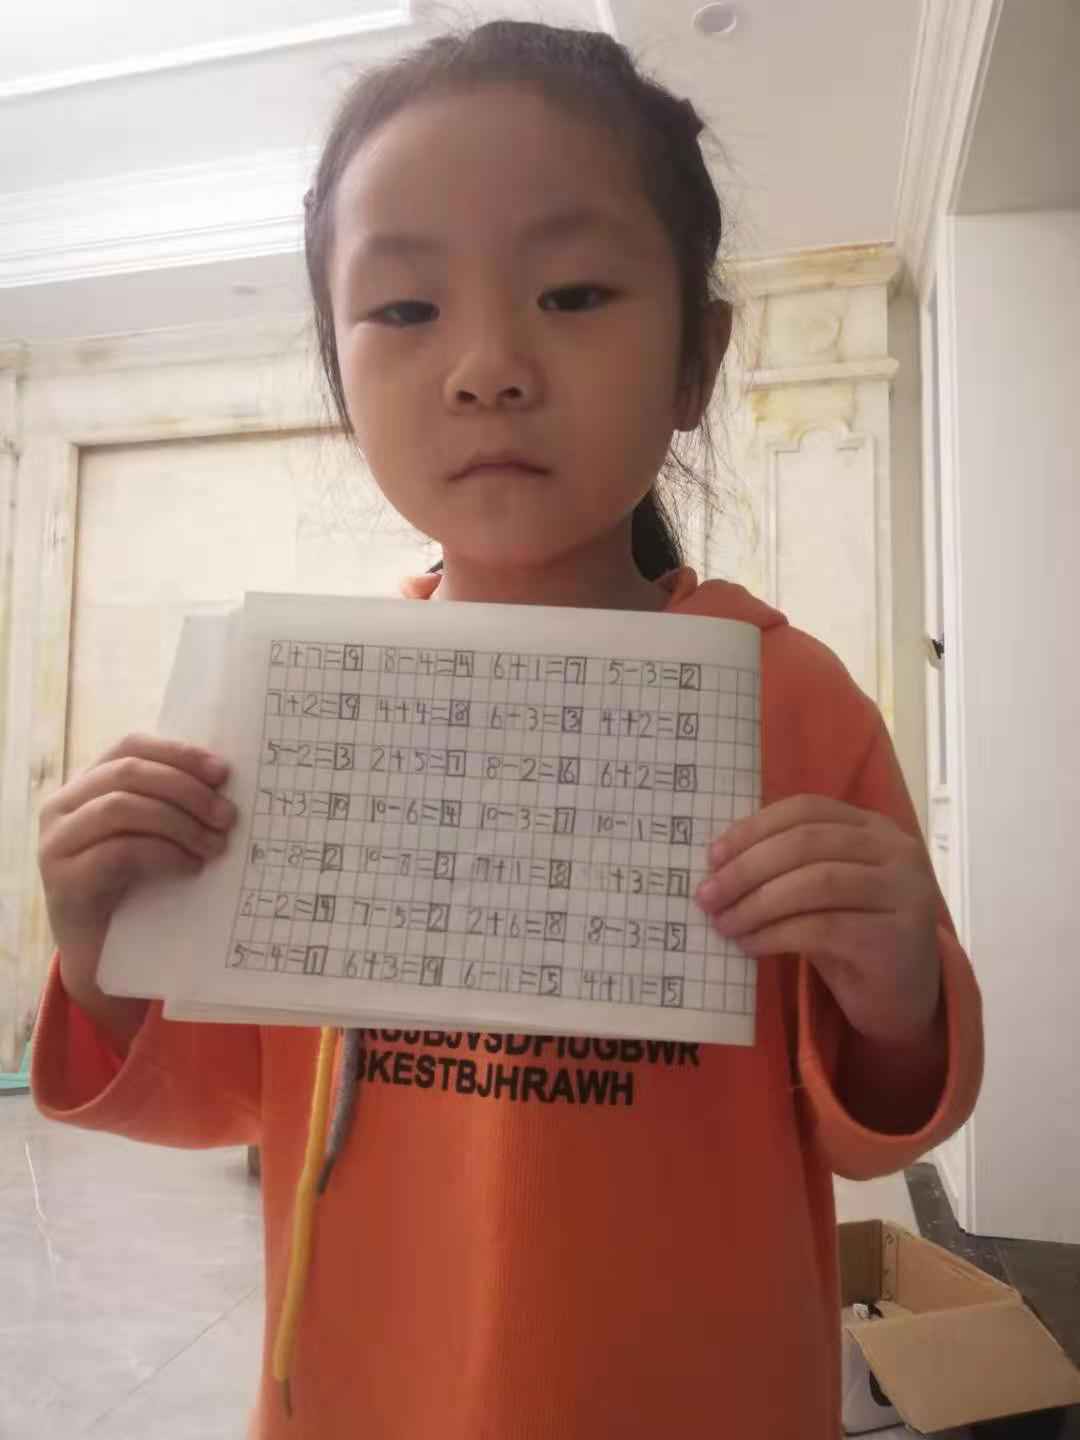 2+7=9 8-4=4 6+1=7 5-3=2
7+2=9 4+4=8 6-3=3 4+2=6
5-2=3 2+5=7 8-2=6 6+2=8
7+3=10 10-6=4 10-3=7 10-1=9
10-8=2 =3 7+1=8 +3=7
6-2=4 7-5=2 2+6=8 8-3=5
5-4=1 6+3=9 6-1=5 4+1=5
BKESTBJHRAWH